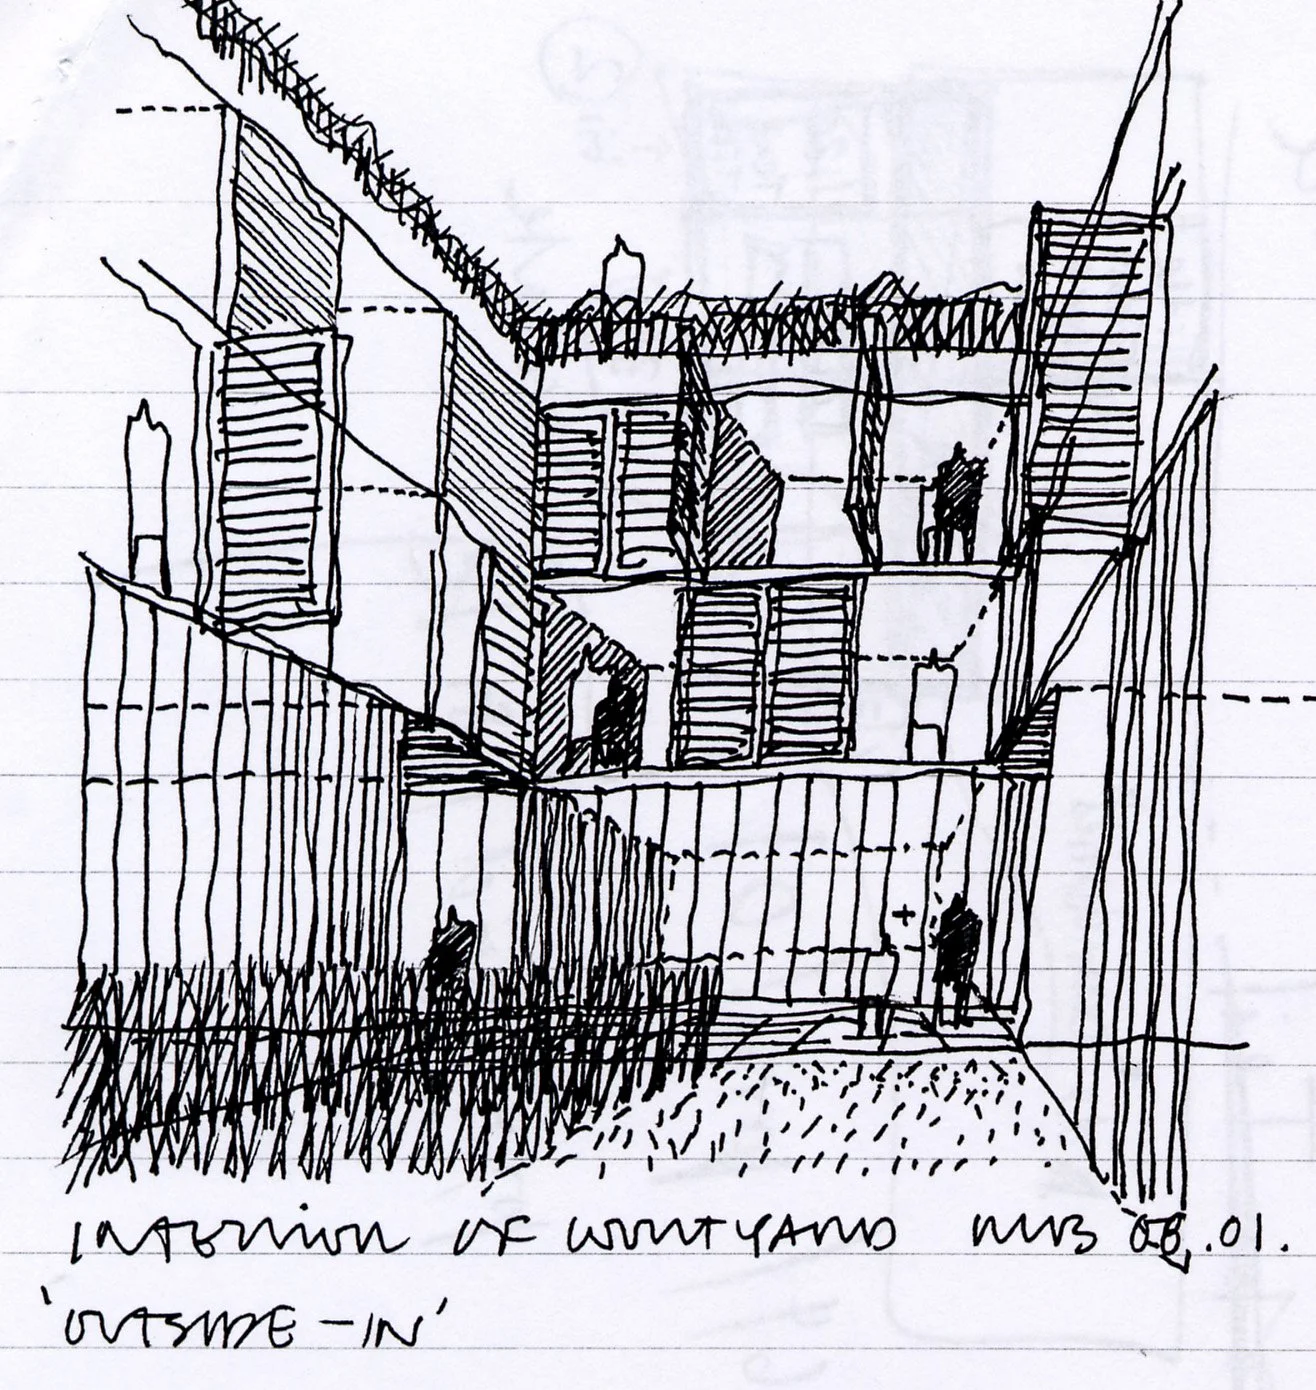 INTERIOR OF COURTYARD MMB 08.01.
'OUTSIDE-IN'